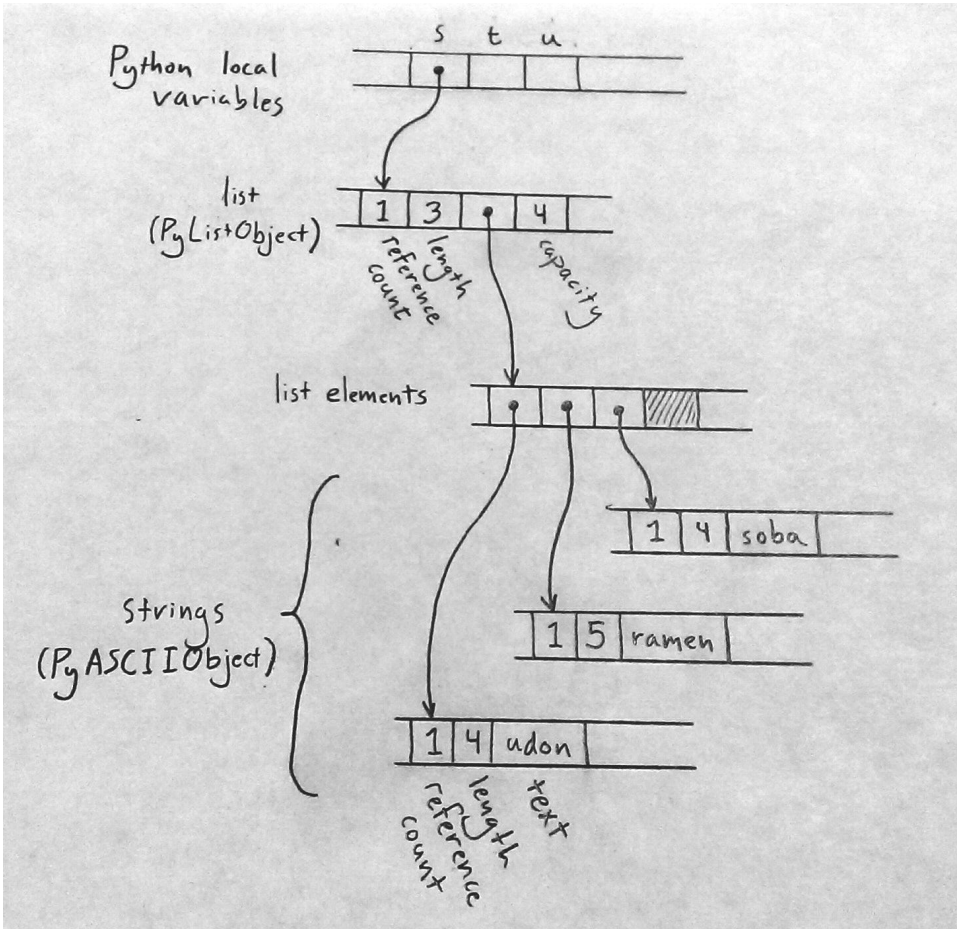 s t u
Python local
variables
list
(PyListObject)
1 3 4
reference
count
length
capacity
list elements
1 4 soba
strings
(PyASCIIObject)
1 5 ramen
1 4 udon
reference
count
length
text